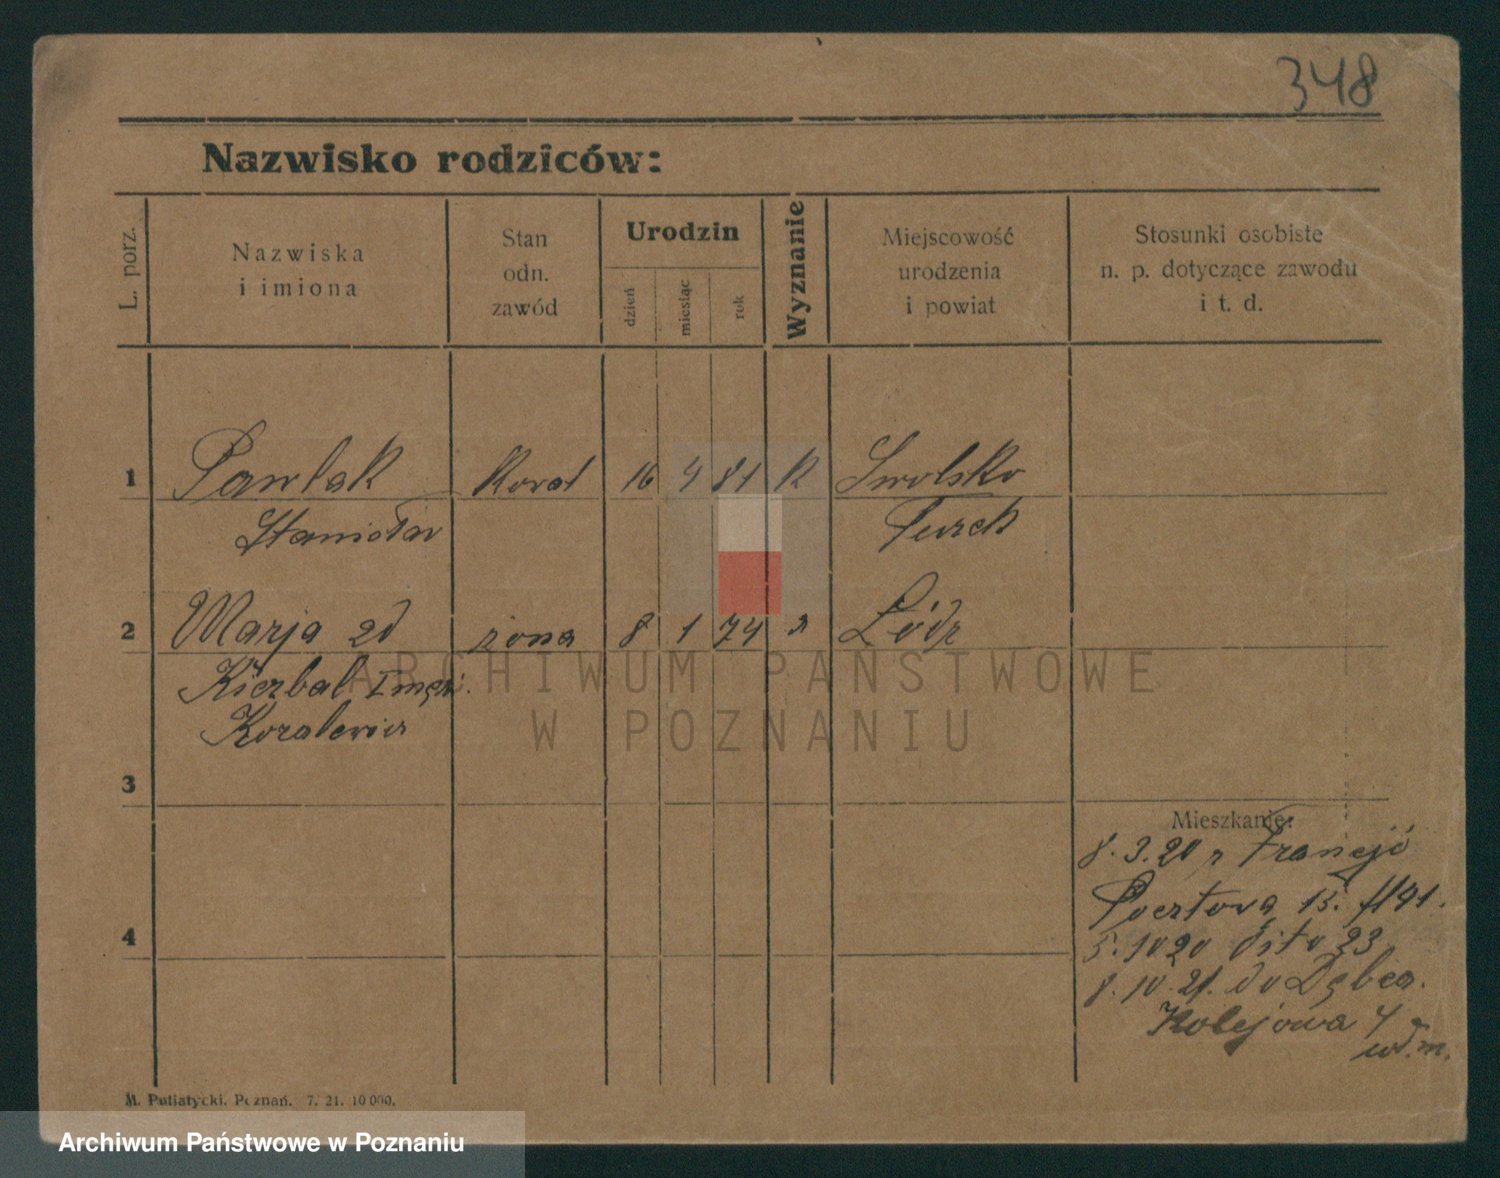 348
Nazwisko rodziców:
L. porz.
Nazwiska
i imiona
Stan
odn.
zawód
Urodzin
dzień
miesiąc
rok
Wyznanie
Miejscowość
urodzenia
i powiat
Stosunki osobiste
n. p. dotyczące zawodu
i t. d.
1 Pawlak Kowal 16 4 81 K Smolsko
Stanisław Turek
2 Marja żona 8 1 74 Łódz
Kierbal I
3
Mieszkanie:
8.3.20 z Francji
Pocztowa 15.
4
5.10 20 dito 23
8.10.21. do Dębca.
Kolejowa 4
M. Putiatycki. Poznań. 7. 21. 10 000.
ARCHIWUM PAŃSTWOWE
W POZNANIU
Archiwum Państwowe w Poznaniu